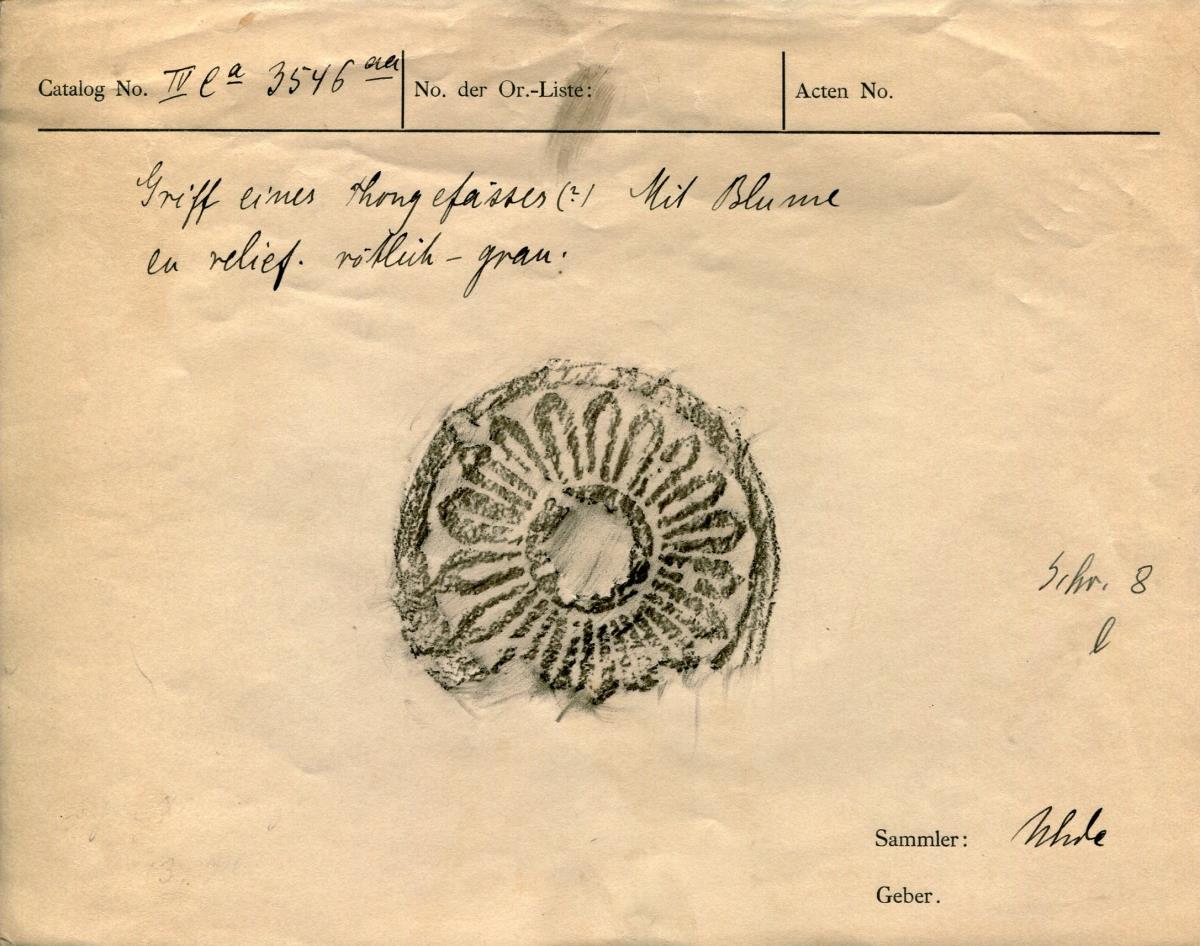 Catalog No. IV Ca 3546 aa No. der Or.-Liste: Acten No.
Griff eines Thongefässes (?) Mit Blume
en relief. rötlich - grau.
Schr. 8
l
Sammler: Uhde
Geber.